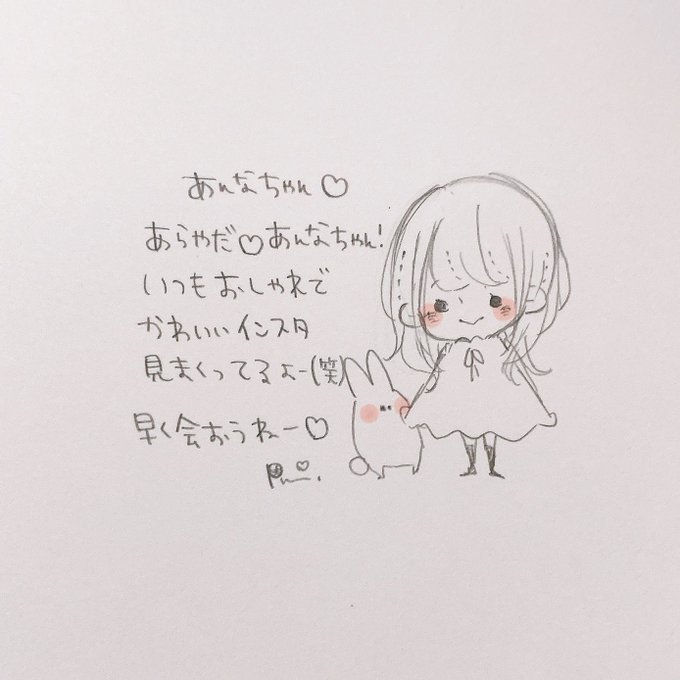 あんなちゃん♡
あらやだ♡あんなちゃん!
いつもおしゃれで
かわいいインスタ
見まくってるよー(笑)
早く会おうねー♡